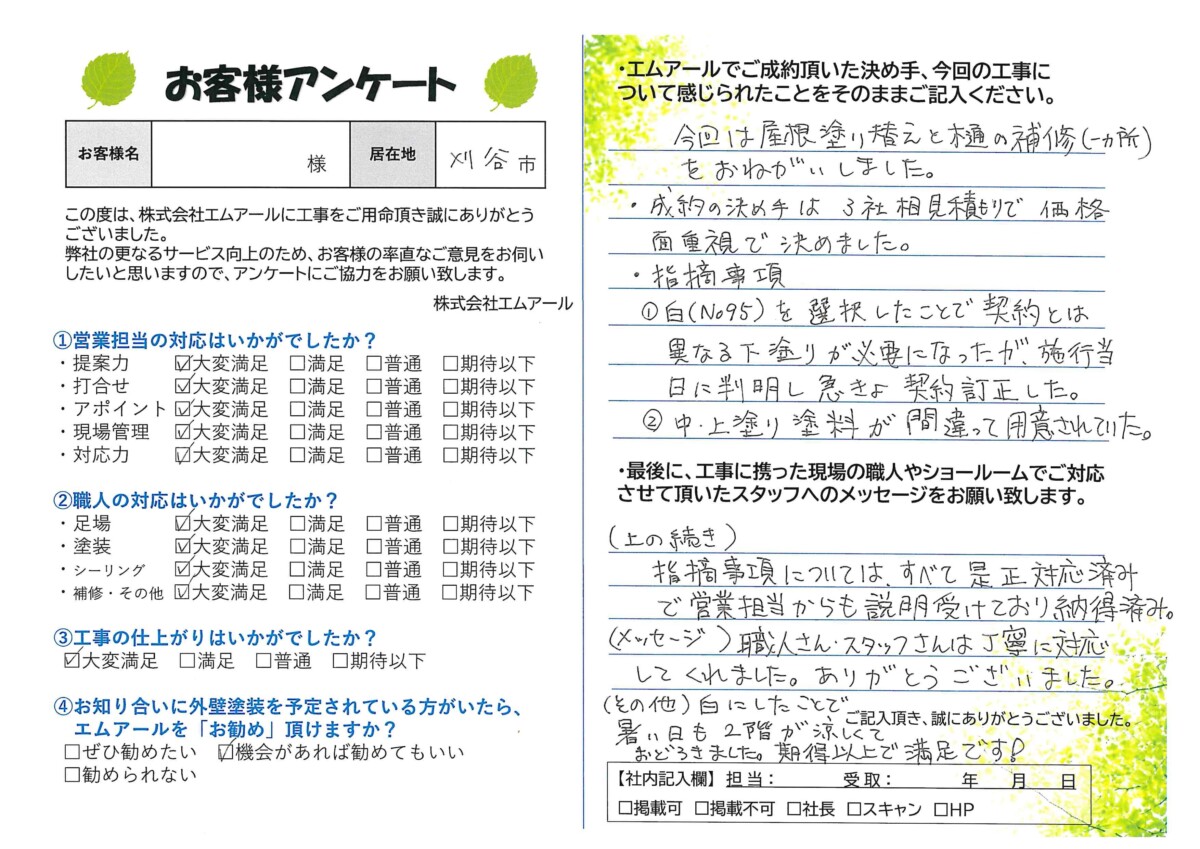 お客様アンケート
お客様名 様 居在地 刈谷市
この度は、株式会社エムアールに工事をご用命頂き誠にありがとう
ございました。
弊社の更なるサービス向上のため、お客様の率直なご意見をお伺い
したいと思いますので、アンケートにご協力をお願い致します。
株式会社エムアール
①営業担当の対応はいかがでしたか？
・提案力 ☑大変満足 □満足 □普通 □期待以下
・打合せ ☑大変満足 □満足 □普通 □期待以下
・アポイント ☑大変満足 □満足 □普通 □期待以下
・現場管理 ☑大変満足 □満足 □普通 □期待以下
・対応力 ☑大変満足 □満足 □普通 □期待以下
②職人の対応はいかがでしたか？
・足場 ☑大変満足 □満足 □普通 □期待以下
・塗装 ☑大変満足 □満足 □普通 □期待以下
・シーリング ☑大変満足 □満足 □普通 □期待以下
・補修・その他 ☑大変満足 □満足 □普通 □期待以下
③工事の仕上がりはいかがでしたか？
☑大変満足 □満足 □普通 □期待以下
④お知り合いに外壁塗装を予定されている方がいたら、
エムアールを「お勧め」頂けますか？
□ぜひ勧めたい ☑機会があれば勧めてもいい
□勧められない
・エムアールでご成約頂いた決め手、今回の工事に
ついて感じられたことをそのままご記入ください。
今回は屋根塗り替えと樋の補修(一カ所)
をおねがいしました。
・成約の決め手は3社相見積もりで価格
面重視で決めました。
・指摘事項
①白(No95)を選択したことで契約とは
異なる下塗りが必要になったが、施行当
日に判明し急きょ契約訂正した。
②中・上塗り塗料が間違って用意されていた。
・最後に、工事に携った現場の職人やショールームでご対応
させて頂いたスタッフへのメッセージをお願い致します。
(上の続き)
指摘事項については、すべて是正対応済み
で営業担当からも説明受けており納得済み。
(メッセージ)職人さん・スタッフさんは丁寧に対応
してくれました。ありがとうございました。
(その他)白にしたことで
ご記入頂き、誠にありがとうございました。
暑い日も2階が涼しくて
おどろきました。期待以上で満足です!
【社内記入欄】担当： 受取： 年 月 日
□掲載可 □掲載不可 □社長 □スキャン □HP